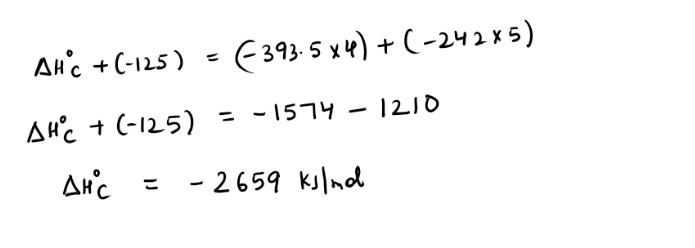 ΔH°c + (-125) = (-393.5 x 4) + (-242 x 5)
ΔH°c + (-125) = - 1574 - 1210
ΔH°c = - 2659 kJ/mol